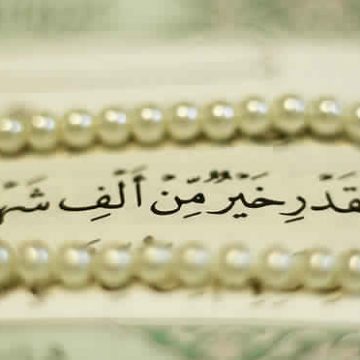 قَدْرِ خَيْرٌ مِّنْ أَلْفِ شَهْ